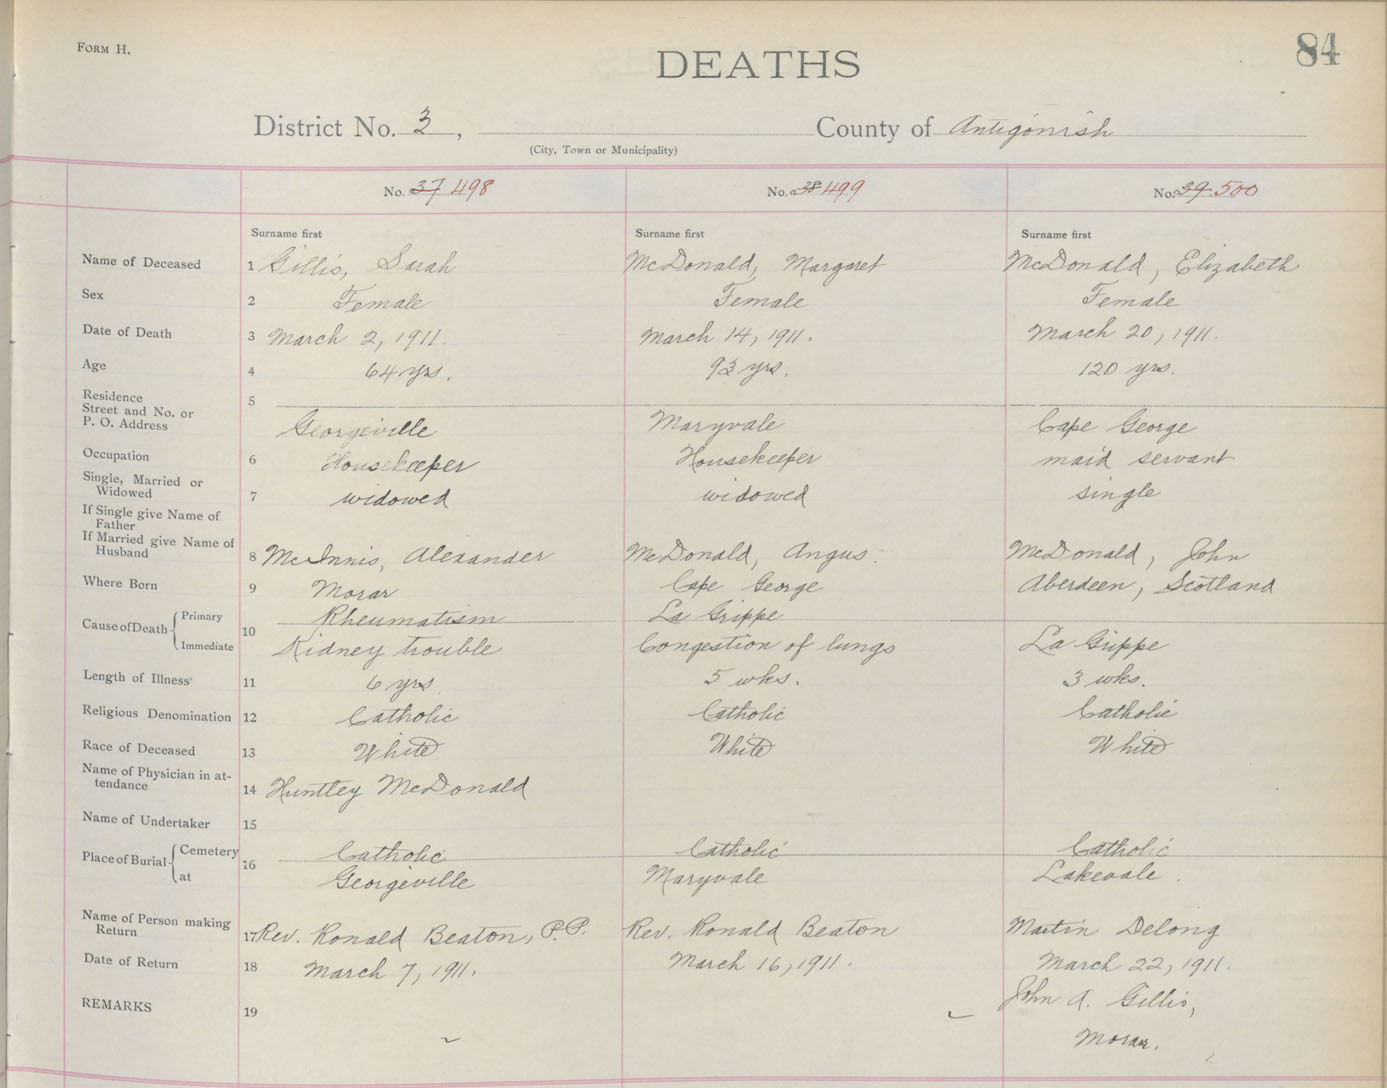 FORM H.
DEATHS
84
District No. 3, County of Antigonish
(City, Town or Municipality)
No. 37 498 No. 38 499 No. 39 500
Surname first Surname first Surname first
Name of Deceased 1 Gillis, Sarah McDonald, Margaret McDonald, Elizabeth
Sex 2 Female Female Female
Date of Death 3 March 2, 1911. March 14, 1911. March 20, 1911.
Age 4 64 yrs. 93 yrs. 120 yrs.
Residence 5
Street and No. or
P. O. Address Georgeville Maryvale Cape George
Occupation 6 Housekeeper Housekeeper maid servant
Single, Married or
Widowed 7 widowed widowed single
If Single give Name of
Father
If Married give Name of
Husband 8 McInnis, Alexander McDonald, Angus. McDonald, John
Where Born 9 Morar Cape George Aberdeen, Scotland
Cause of Death 10 Primary Rheumatism La Grippe
Immediate Kidney trouble Congestion of lungs La Grippe
Length of Illness 11 6 yrs 5 wks. 3 wks.
Religious Denomination 12 Catholic Catholic Catholic
Race of Deceased 13 White White White
Name of Physician in at-
tendance 14 Huntley McDonald
Name of Undertaker 15
Place of Burial 16 Cemetery Catholic Catholic Catholic
at Georgeville Maryvale Lakevale.
Name of Person making
Return 17 Rev. Ronald Beaton, P.P. Rev. Ronald Beaton Martin Delong
Date of Return 18 March 7, 1911. March 16, 1911. March 22, 1911.
REMARKS 19 John A. Gillis,
Morar.